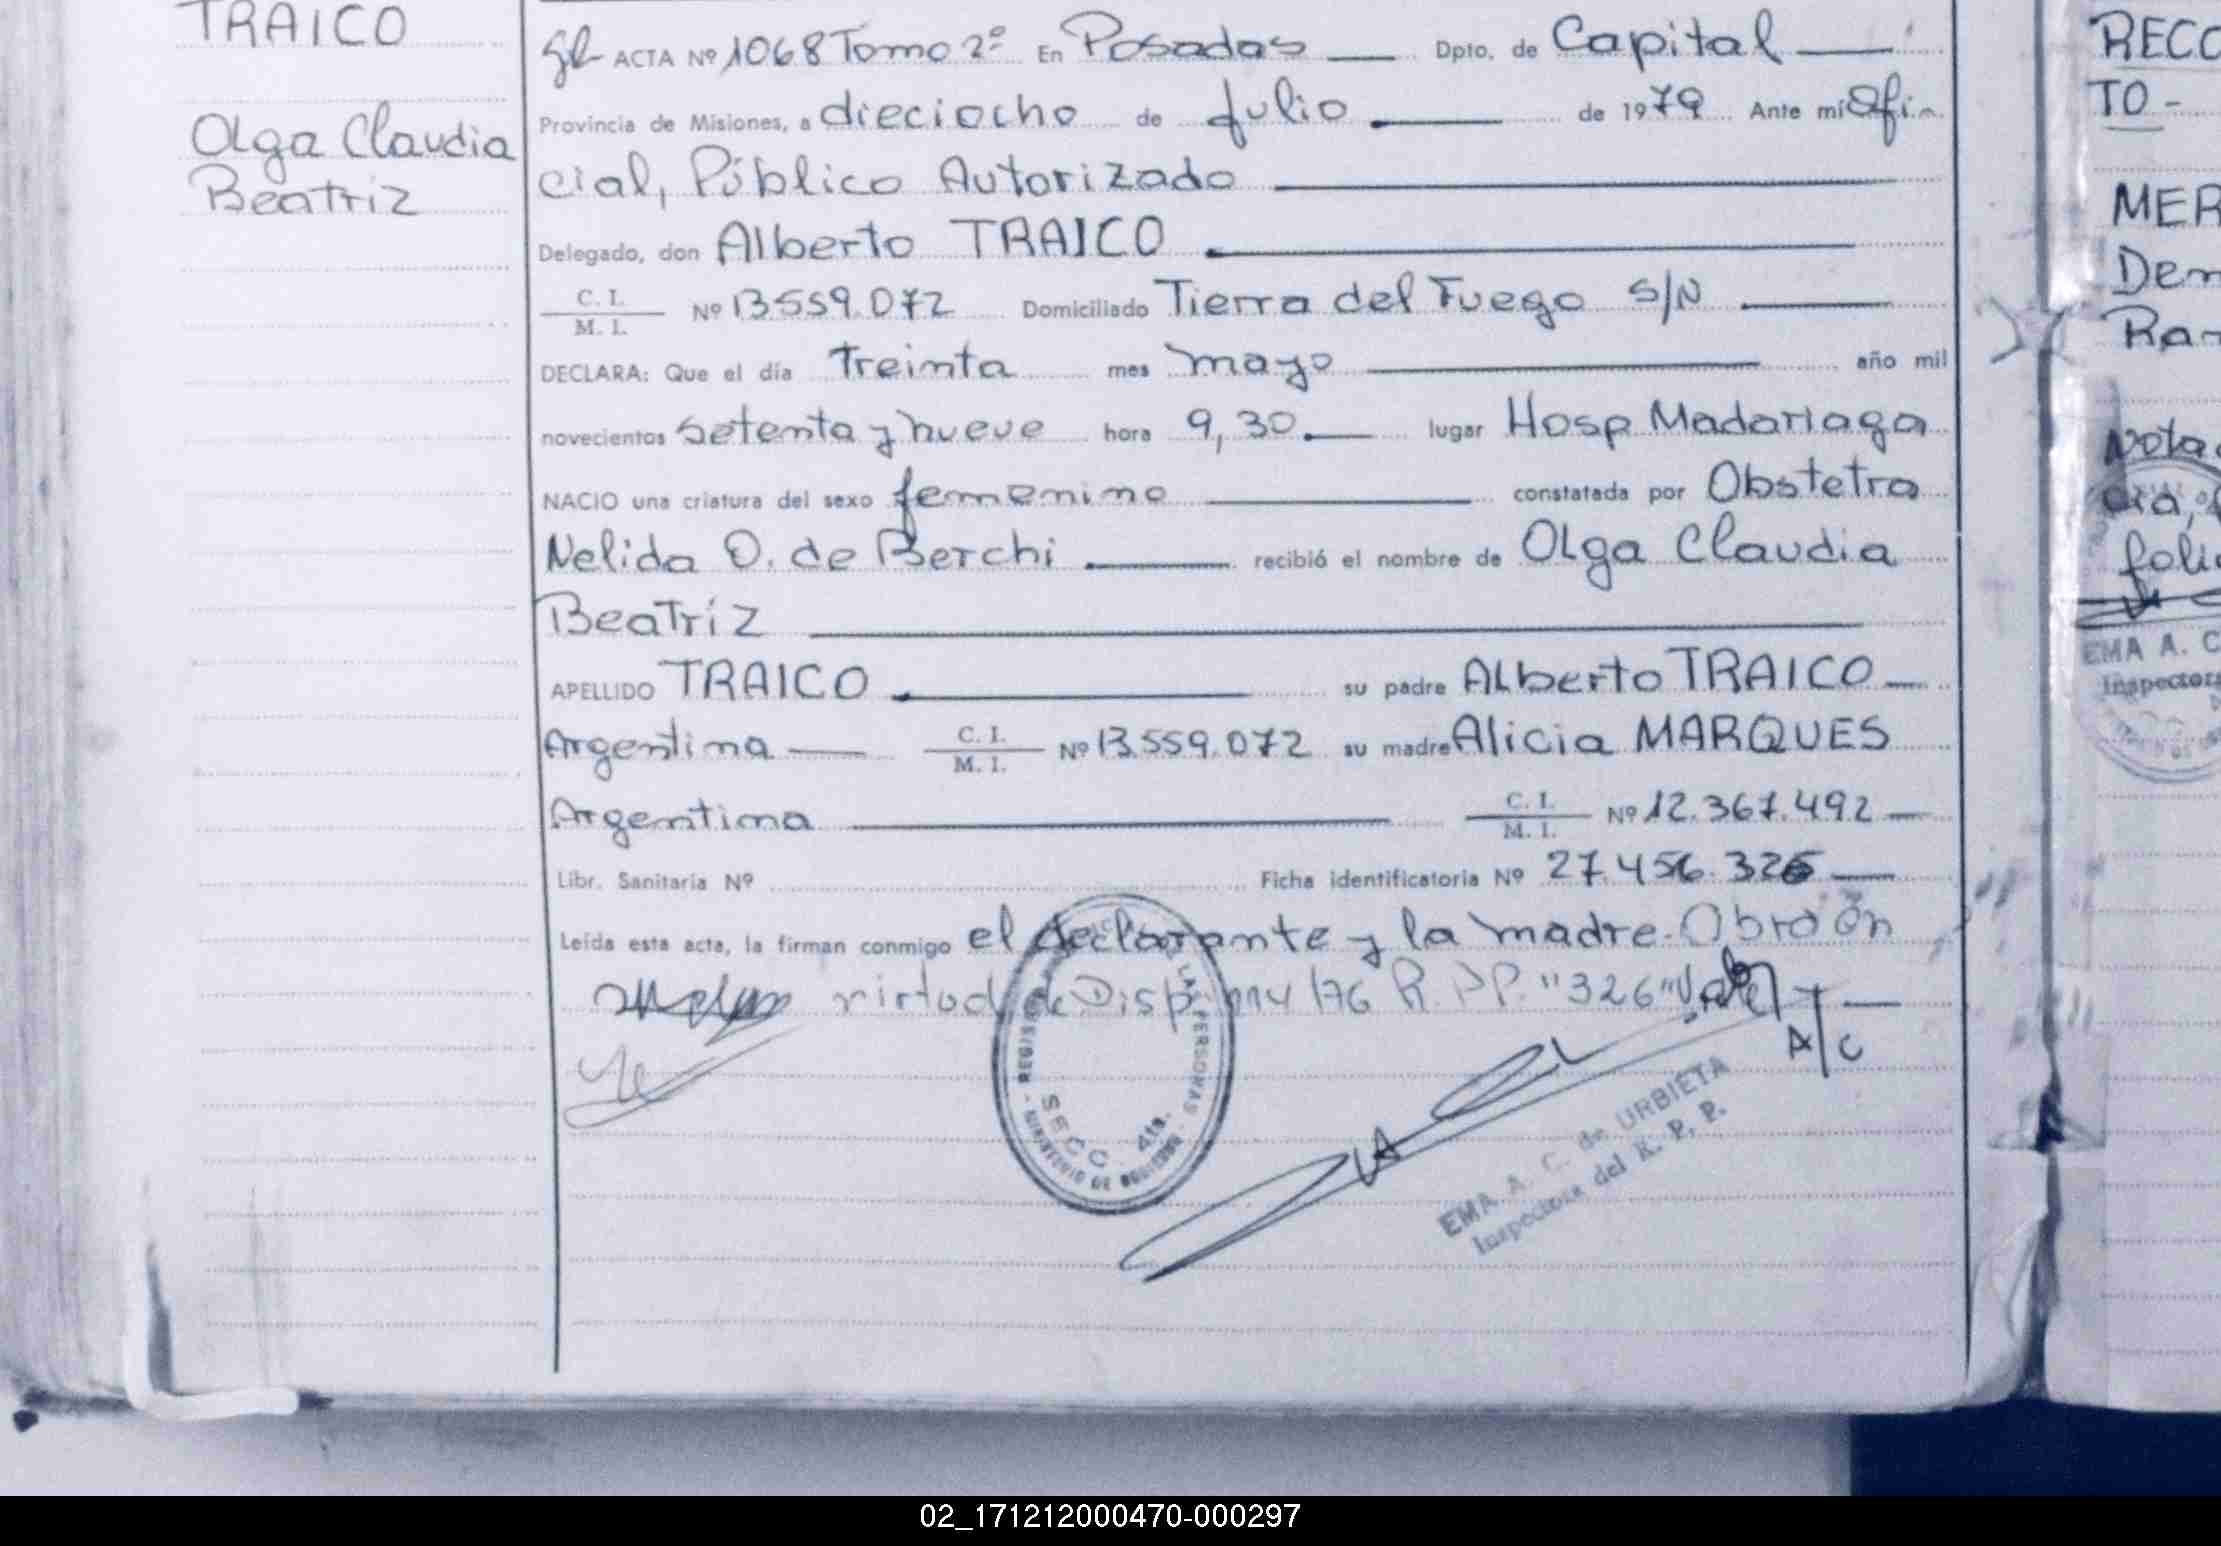 TRAICO
Olga Claudia
Beatriz
ACTA Nº 1068 Tomo 2º En Posadas Dpto. de Capital
Provincia de Misiones, a dieciocho de Julio de 1979 Ante mí Ofi
cial, Público Autorizado
Delegado, don Alberto TRAICO
C. I.
M. I. Nº 13.559.072 Domiciliado Tierra del Fuego S/N
DECLARA: Que el día treinta mes mayo año mil
novecientos setenta y nueve hora 9,30 lugar Hosp Madariaga
NACIO una criatura del sexo femenino constatada por Obstetra
Nelida O. de Berchi recibió el nombre de Olga Claudia
Beatriz
APELLIDO TRAICO su padre Alberto TRAICO
Argentina C. I. M. I. Nº 13.559.072 su madre Alicia MARQUES
Argentina C. I. M. I. Nº 12.367.492
Libr. Sanitaria Nº Ficha identificatoria Nº 27.456.326
Leída esta acta, la firman conmigo el declarante y la madre. Obro en
virtud de Disp. /76 R.P.P. "326" Vale
A/C
REGIS LAS PERSONAS
MINISTERIO DE GOBIERNO
SECC. 4ta.
EMA A. C. de URBIETA
Inspectora del R. P. P.
RECO
TO-
MER
Ram
Nota
cia,
folio
EMA A. C
Inspectora
02_171212000470-000297